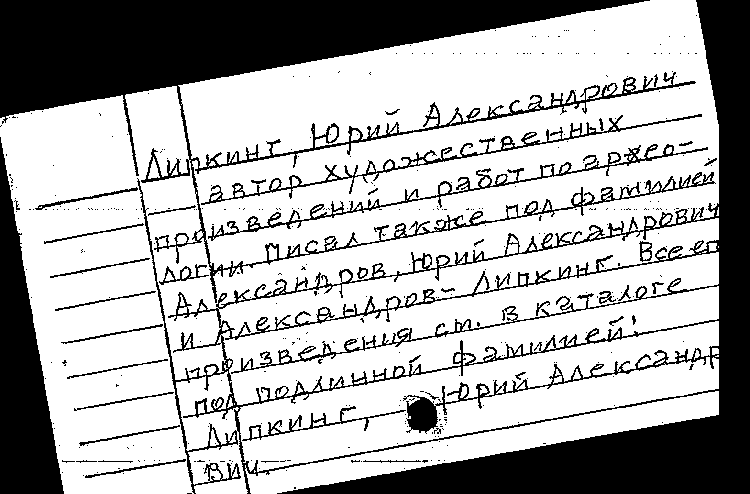 Липкинг, Юрий Александрович
автор художественных
произведений и работ по архео-
логии. Писал также под фамилией
Александров, Юрий Александрович
и Александров-Липкинг. Все ег
произведения см. в каталоге
под подлинной фамилией:
Липкинг, Юрий Александр
вич.